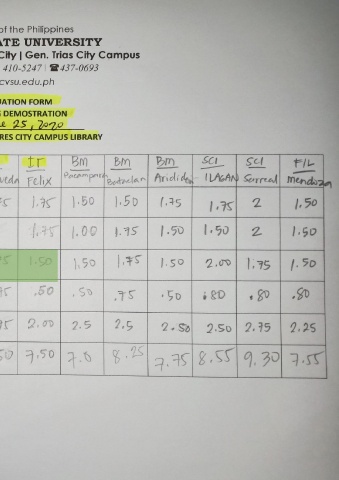 of the Philippines
ATE UNIVERSITY
City | Gen. Trias City Campus
410-5247 ☎437-0693
cvsu.edu.ph
UATION FORM
DEMOSTRATION
25, 2020
RES CITY CAMPUS LIBRARY
IT BM BM BM SCI SCI FIL
Felix ILAGAN Mendoza
75 1.75 1.50 1.50 1.75 1.75 2 1.50
1.75 1.00 1.75 1.50 1.50 2 1.50
75 1.50 1.50 1.75 1.50 2.00 1.75 1.50
75 .50 .50 .75 .50 .80 .80 .80
75 2.00 2.5 2.5 2.50 2.50 2.75 2.25
50 7.50 7.0 8.25 7.75 8.55 9.30 7.55